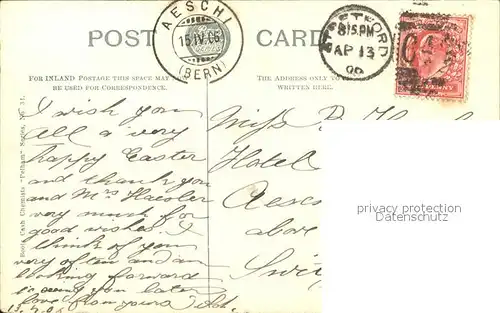 POST CARD
AESCHI
15.IV.06
(BERN)
8.15 PM
AP 13
06
PENNY
FOR INLAND POSTAGE THIS SPACE MAY
BE USED FOR CORRESPONDENCE.
THE ADDRESS ONLY TO
WRITTEN HERE.
Boots Cash Chemists "Pelham" Series, No. 31.
I wish you
all a very
happy Easter
and thank you
and Mrs
very much for
good wishes. I
think of you
very often and am
looking forward
to seeing you later
love from yours
13.4.06
Miss
Hotel
Aesc
above
Swi
privacy protection
Datenschutz